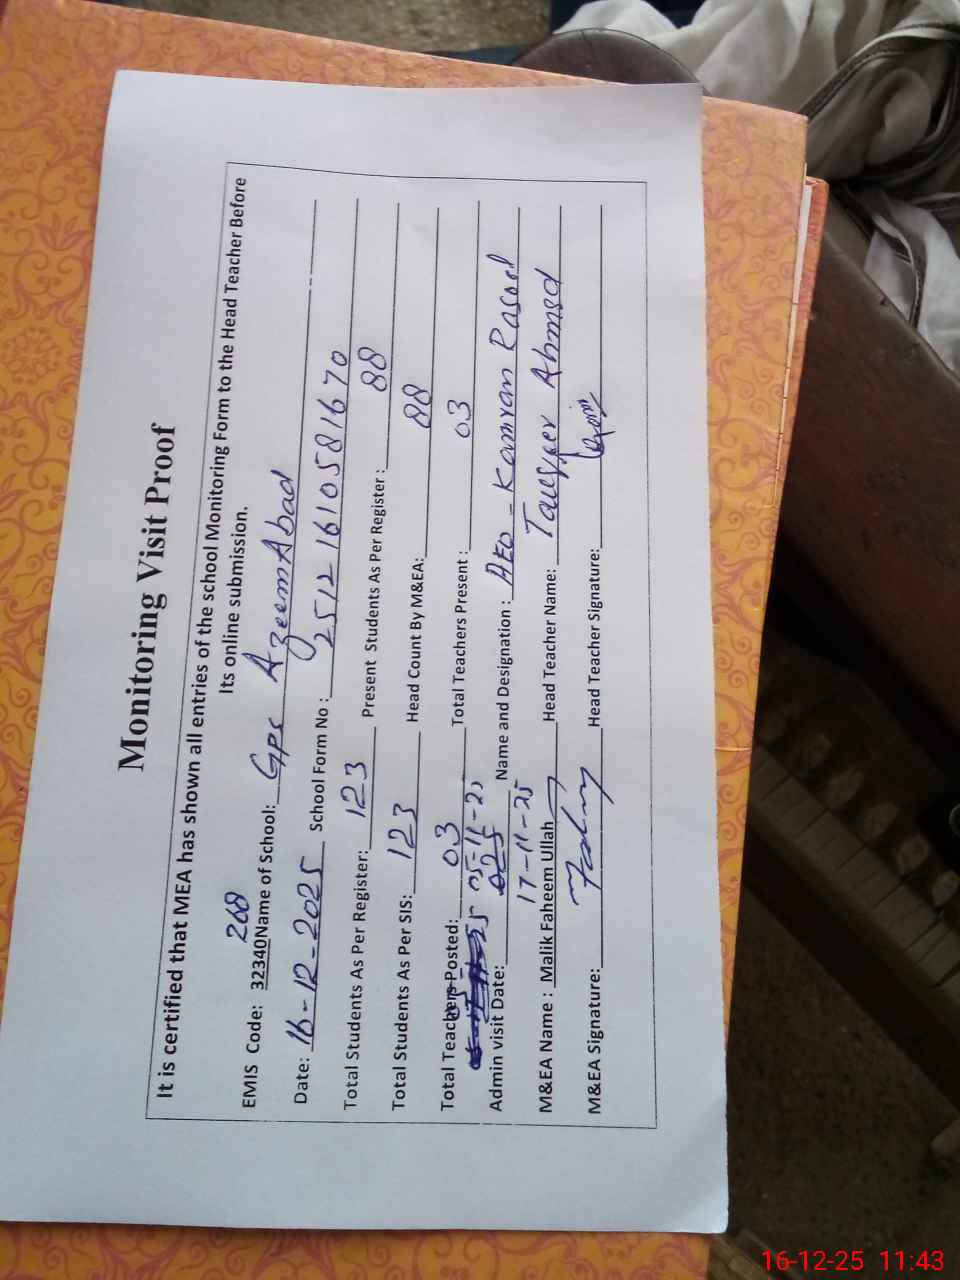 Monitoring Visit Proof
It is certified that MEA has shown all entries of the school Monitoring Form to the Head Teacher Before
Its online submission.
EMIS Code: 32340268 Name of School: GPS AzeemAbad
Date: 16-12-2025 School Form No: 25121610581670
Total Students As Per Register: 123 Present Students As Per Register: 88
Total Students As Per SIS: 123 Head Count By M&EA: 88
Total Teachers Posted: 03 Total Teachers Present: 03
Admin visit Date: 17-11-25 Name and Designation: AEO - Kamran Rasool
M&EA Name: Malik Faheem Ullah Head Teacher Name: Ahmed
M&EA Signature: Head Teacher Signature:
16-12-25 11:43